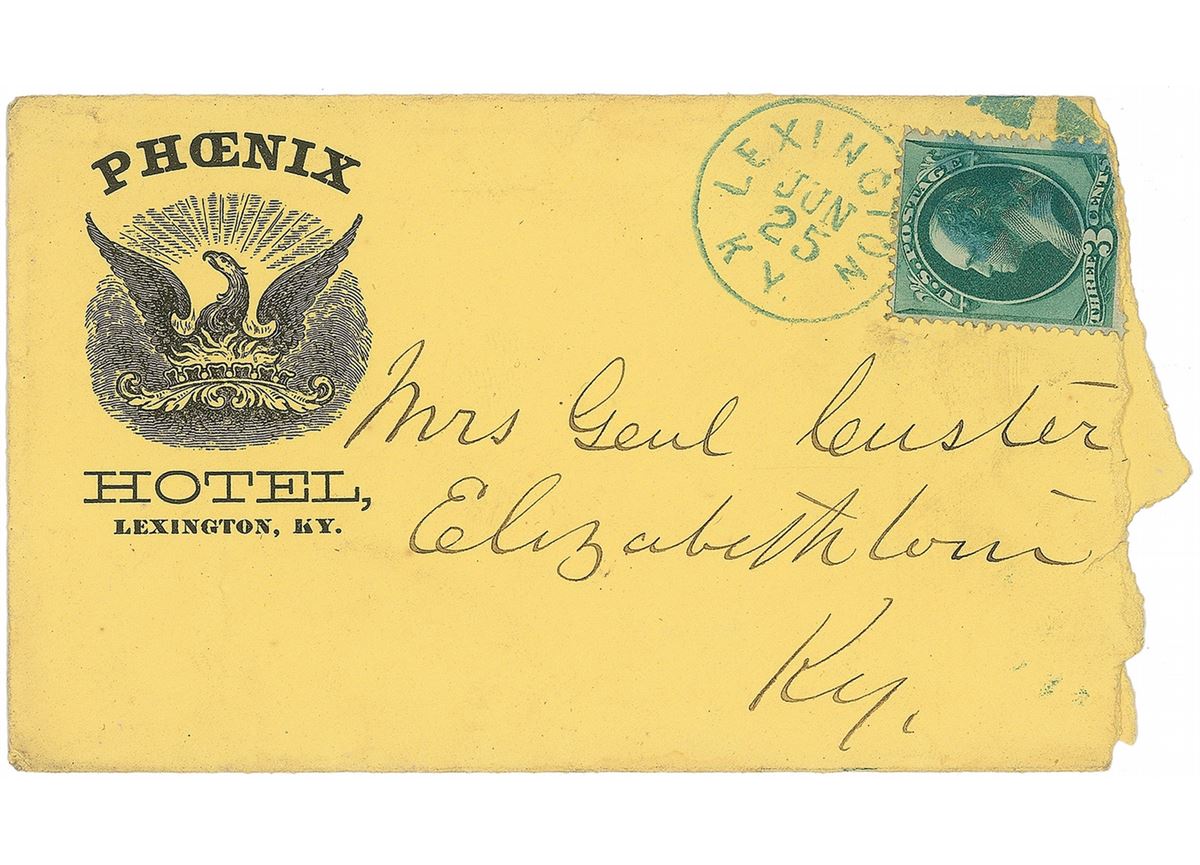 PHŒNIX
HOTEL,
LEXINGTON, KY.
LEXINGTON
JUN
25
KY.
U.S. POSTAGE
THREE 3 CENTS
Mrs Genl Custer
Elizabethtown
Ky.